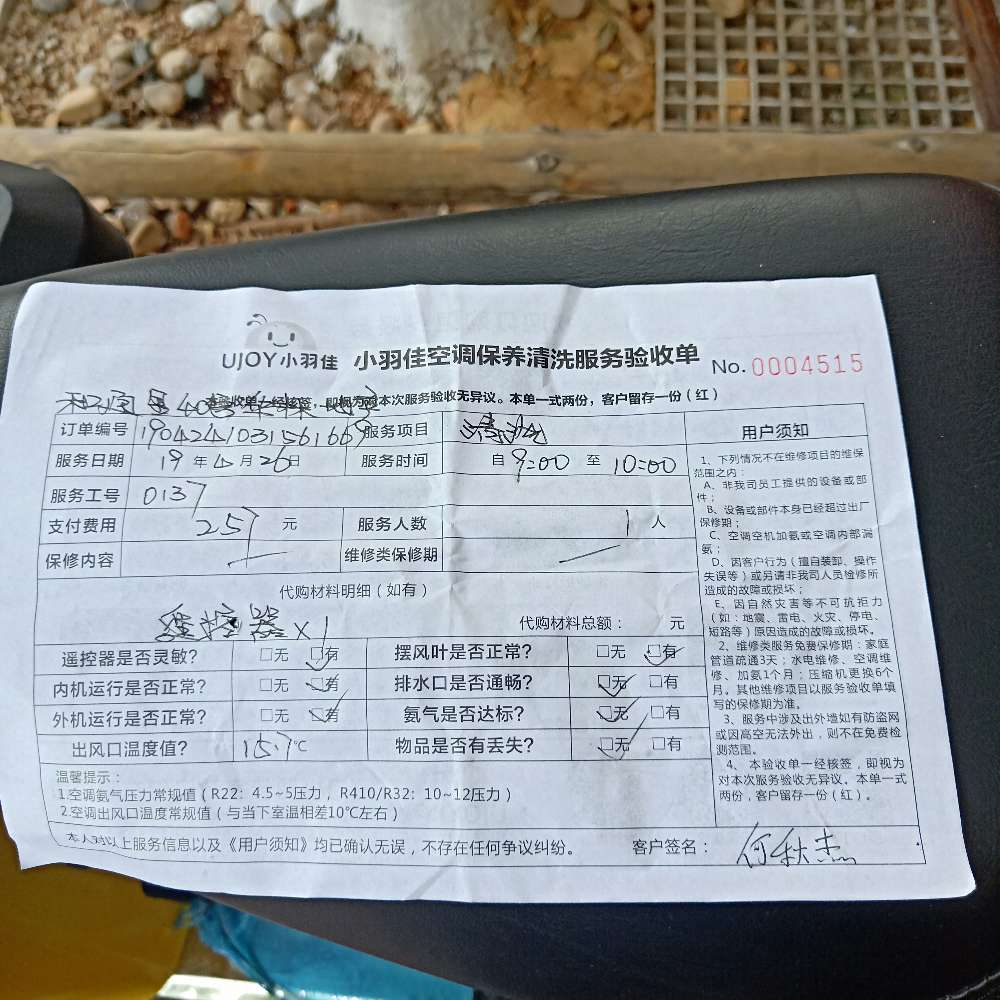 UJOY小羽佳 小羽佳空调保养清洗服务验收单 No. 0004515
本验收单一经核签，即视为对本次服务验收无异议。本单一式两份，客户留存一份（红）
订单编号 1904241031561669 服务项目 清洗
服务日期 19 年 4 月 26 日 服务时间 自 9:00 至 10:00
服务工号 0137
支付费用 257 元 服务人数 1 人
保修内容 维修类保修期
代购材料明细（如有）
遥控器 x 1 代购材料总额： 元
遥控器是否灵敏？ □无 □有 摆风叶是否正常？ □无 □有
内机运行是否正常？ □无 □有 排水口是否通畅？ □无 □有
外机运行是否正常？ □无 □有 氨气是否达标？ □无 □有
出风口温度值？ 15.7 ℃ 物品是否有丢失？ □无 □有
温馨提示：
1.空调氨气压力常规值（R22：4.5~5压力，R410/R32：10~12压力）
2.空调出风口温度常规值（与当下室温相差10℃左右）
本人对以上服务信息以及《用户须知》均已确认无误，不存在任何争议纠纷。 客户签名： 何秋杰
用户须知
1、下列情况不在维修项目的维保
范围之内：
A、非我司员工提供的设备或部
件；
B、设备或部件本身已经超过出厂
保修期；
C、空调空机加氨或空调内部漏
氨；
D、因客户行为（擅自装卸、操作
失误等）或另请非我司人员检修所
造成的故障或损坏；
E、因自然灾害等不可抗拒力
（如：地震、雷电、火灾、停电、
短路等）原因造成的故障或损坏。
2、维修类服务免费保修期：家庭
管道疏通3天；水电维修、空调维
修、加氨1个月；压缩机更换6个
月。其他维修项目以服务验收单填
写的保修期为准。
3、服务中涉及出外墙如有防盗网
或因高空无法外出，则不在免费检
测范围。
4、本验收单一经核签，即视为
对本次服务验收无异议。本单一式
两份，客户留存一份（红）。